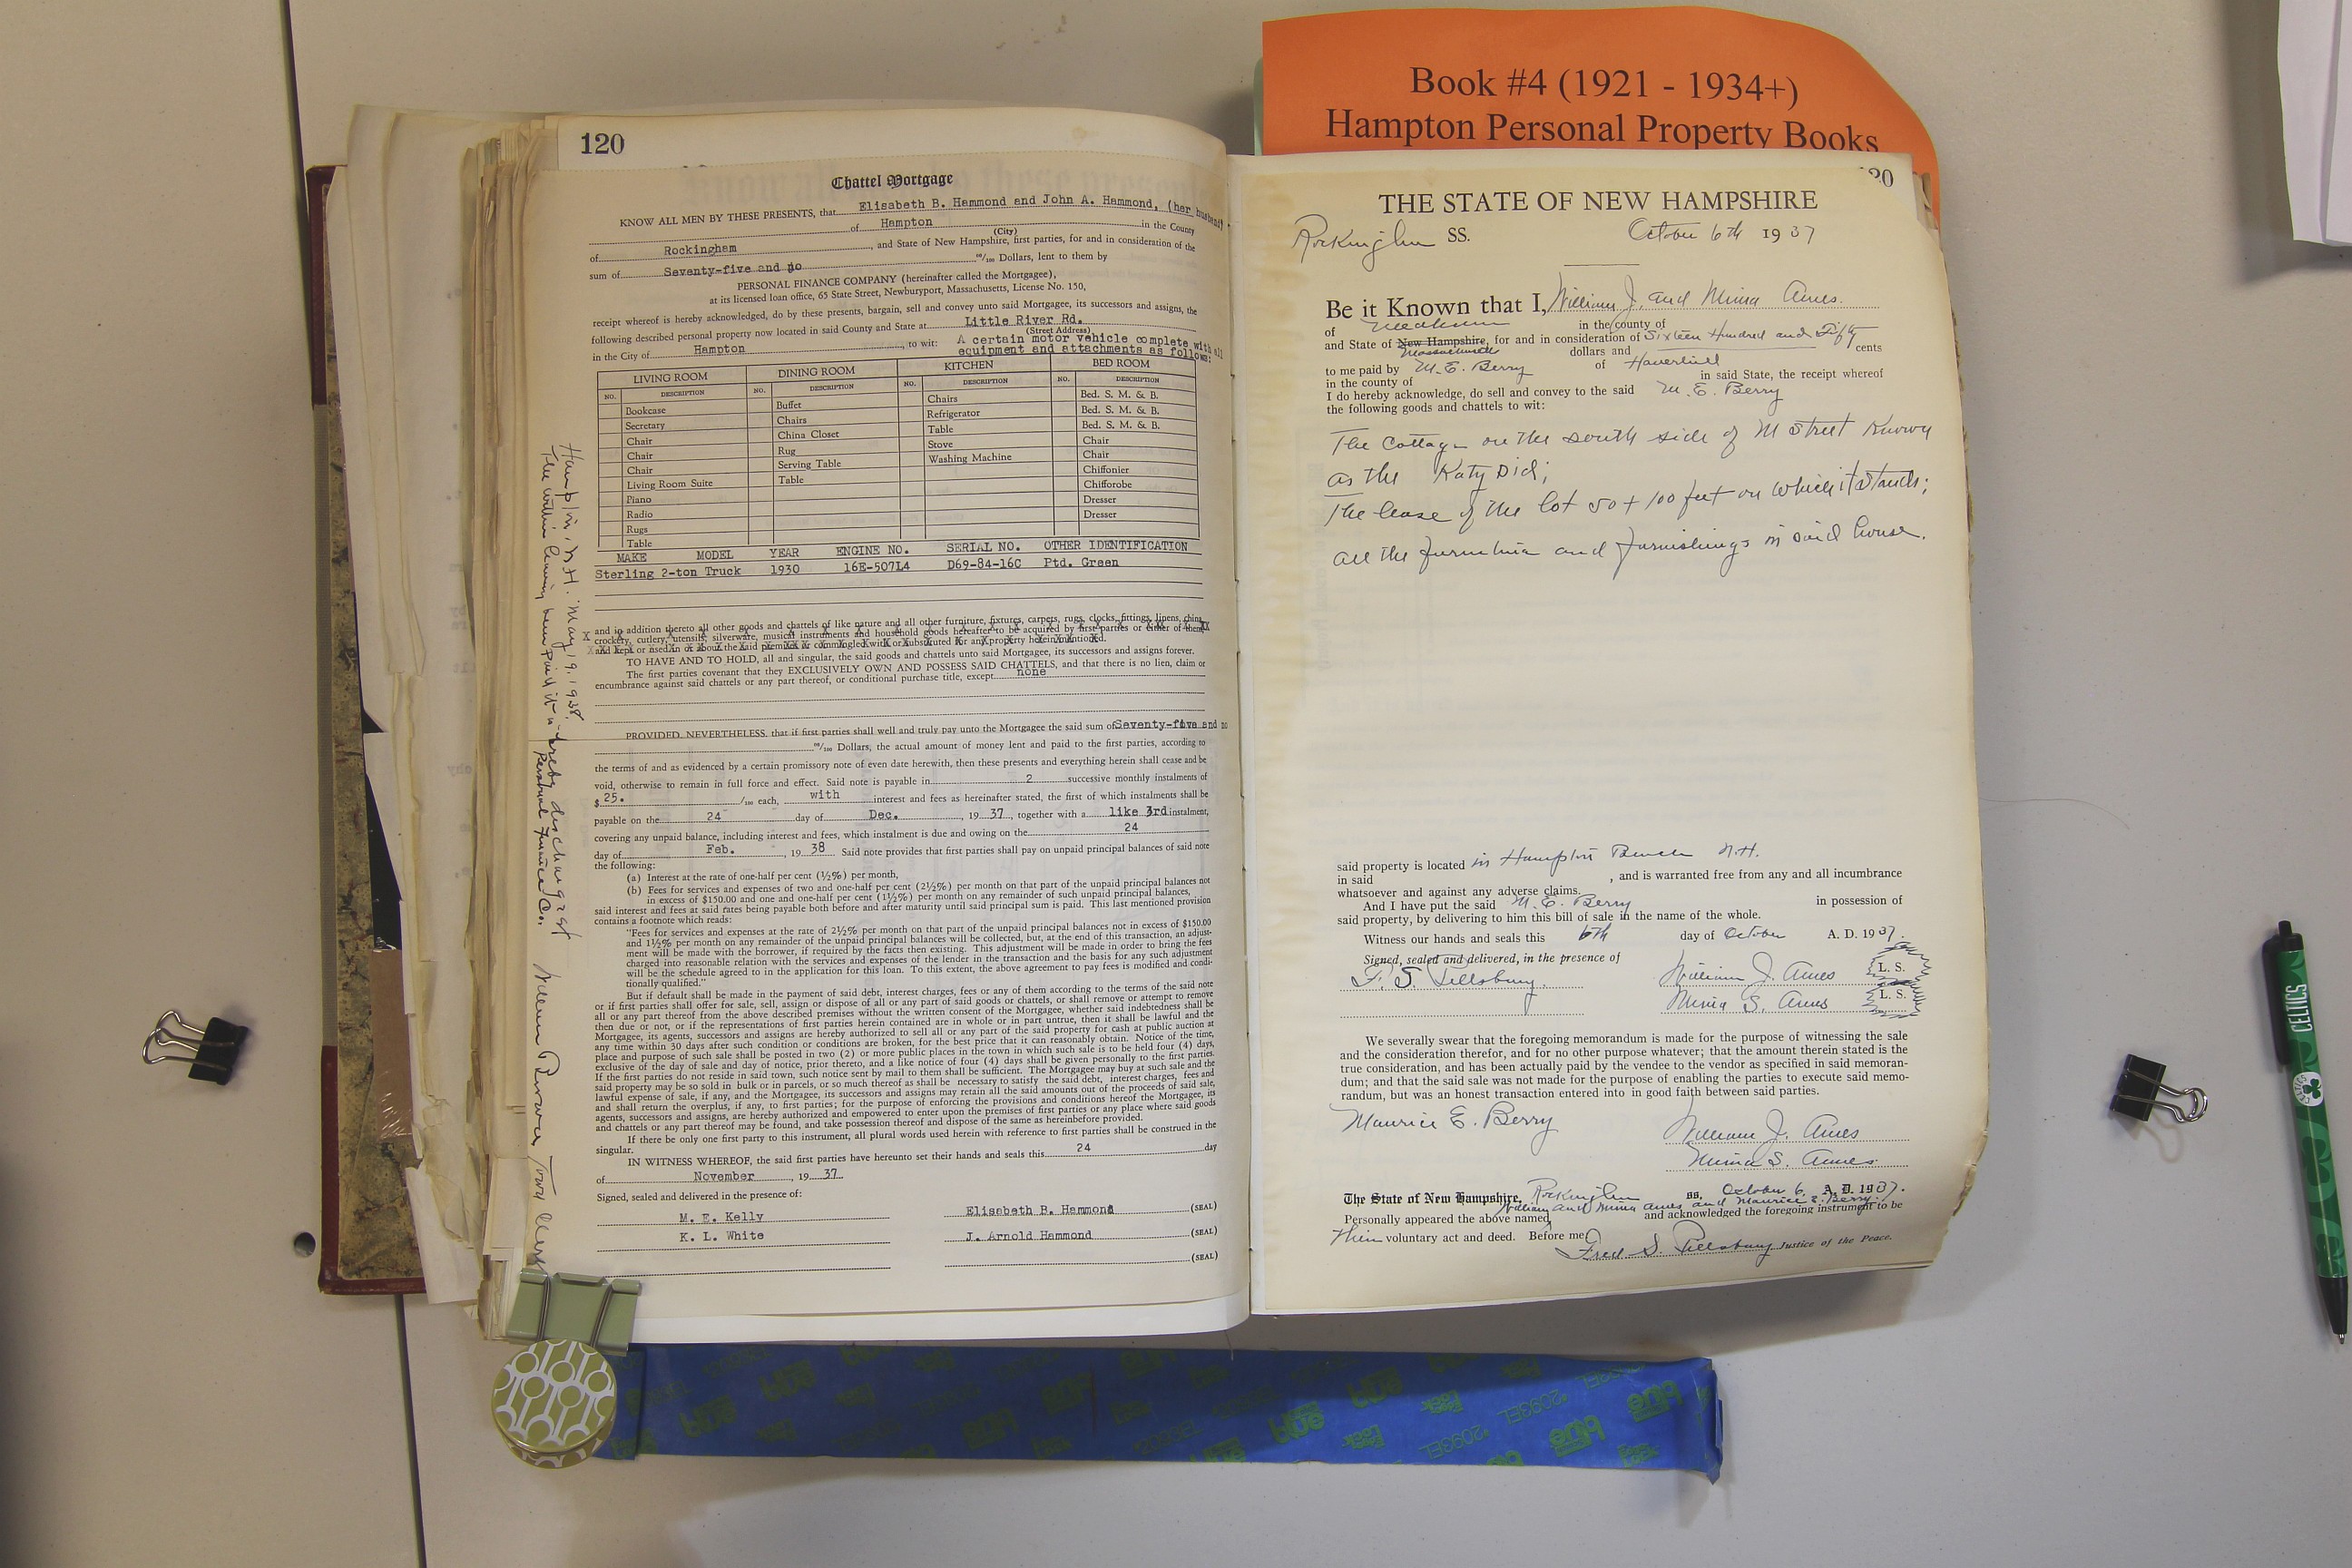 Book #4 (1921 - 1934+)
Hampton Personal Property Books
120
Chattel Mortgage
KNOW ALL MEN BY THESE PRESENTS, that Elisabeth B. Hammond and John A. Hammond, (her husband)
of Hampton in the County
(City)
of Rockingham, and State of New Hampshire, first parties, for and in consideration of the
sum of Seventy-five and no 00/100 Dollars, lent to them by
PERSONAL FINANCE COMPANY (hereinafter called the Mortgagee),
at its licensed loan office, 65 State Street, Newburyport, Massachusetts, License No. 150,
receipt whereof is hereby acknowledged, do by these presents, bargain, sell and convey unto said Mortgagee, its successors and assigns, the
following described personal property now located in said County and State at Little River Rd.
(Street Address)
in the City of Hampton, to wit: A certain motor vehicle complete with all
equipment and attachments as follows:
LIVING ROOM DINING ROOM KITCHEN BED ROOM
NO. DESCRIPTION NO. DESCRIPTION NO. DESCRIPTION NO. DESCRIPTION
Bookcase Buffet Chairs Bed. S. M. & B.
Secretary Chairs Refrigerator Bed. S. M. & B.
Chair China Closet Table Bed. S. M. & B.
Chair Rug Stove Chair
Chair Serving Table Washing Machine Chair
Living Room Suite Table Chiffonier
Piano Chifforobe
Radio Dresser
Rugs Dresser
Table
MAKE MODEL YEAR ENGINE NO. SERIAL NO. OTHER IDENTIFICATION
Sterling 2-ton Truck 1930 16E-507L4 D69-84-16C Ptd. Green
and in addition thereto all other goods and chattels of like nature and all other furniture, fixtures, carpets, rugs, clocks, fittings, linens, china,
crockery, cutlery, utensils, silverware, musical instruments and household goods hereafter to be acquired by first parties or either of them,
and kept or used in or about the said premises or commingled with or substituted for any property herein mentioned.
TO HAVE AND TO HOLD, all and singular, the said goods and chattels unto said Mortgagee, its successors and assigns forever.
The first parties covenant that they EXCLUSIVELY OWN AND POSSESS SAID CHATTELS, and that there is no lien, claim or
encumbrance against said chattels or any part thereof, or conditional purchase title, except none
PROVIDED, NEVERTHELESS, that if first parties shall well and truly pay unto the Mortgagee the said sum of Seventy-five and no
00/100 Dollars, the actual amount of money lent and paid to the first parties, according to
the terms of and as evidenced by a certain promissory note of even date herewith, then these presents and everything herein shall cease and be
void, otherwise to remain in full force and effect. Said note is payable in 2 successive monthly instalments of
$ 25. /100 each, with interest and fees as hereinafter stated, the first of which instalments shall be
payable on the 24 day of Dec., 19 37, together with a like 3rd instalment,
covering any unpaid balance, including interest and fees, which instalment is due and owing on the 24
day of Feb., 19 38 Said note provides that first parties shall pay on unpaid principal balances of said note
the following:
(a) Interest at the rate of one-half per cent (½%) per month,
(b) Fees for services and expenses of two and one-half per cent (2½%) per month on that part of the unpaid principal balances not
in excess of $150.00 and one and one-half per cent (1½%) per month on any remainder of such unpaid principal balances,
said interest and fees at said rates being payable both before and after maturity until said principal sum is paid. This last mentioned provision
contains a footnote which reads:
"Fees for services and expenses at the rate of 2½% per month on that part of the unpaid principal balances not in excess of $150.00
and 1½% per month on any remainder of the unpaid principal balances will be collected, but, at the end of this transaction, an adjust-
ment will be made with the borrower, if required by the facts then existing. This adjustment will be made in order to bring the fees
charged into reasonable relation with the services and expenses of the lender in the transaction and the basis for any such adjustment
will be the schedule agreed to in the application for this loan. To this extent, the above agreement to pay fees is modified and condi-
tionally qualified."
But if default shall be made in the payment of said debt, interest charges, fees or any of them according to the terms of the said note
or if first parties shall offer for sale, sell, assign or dispose of all or any part of said goods or chattels, or shall remove or attempt to remove
all or any part thereof from the above described premises without the written consent of the Mortgagee, whether said indebtedness shall be
then due or not, or if the representations of first parties herein contained are in whole or in part untrue, then it shall be lawful and the
Mortgagee, its agents, successors and assigns are hereby authorized to sell all or any part of the said property for cash at public auction at
any time within 30 days after such condition or conditions are broken, for the best price that it can reasonably obtain. Notice of the time,
place and purpose of such sale shall be posted in two (2) or more public places in the town in which such sale is to be held four (4) days,
exclusive of the day of sale and day of notice, prior thereto, and a like notice of four (4) days shall be given personally to the first parties.
If the first parties do not reside in said town, such notice sent by mail to them shall be sufficient. The Mortgagee may buy at such sale and the
said property may be so sold in bulk or in parcels, or so much thereof as shall be necessary to satisfy the said debt, interest charges, fees and
lawful expense of sale, if any, and the Mortgagee, its successors and assigns may retain all the said amounts out of the proceeds of said sale,
and shall return the overplus, if any, to first parties; for the purpose of enforcing the provisions and conditions hereof the Mortgagee, its
agents, successors and assigns, are hereby authorized and empowered to enter upon the premises of first parties or any place where said goods
and chattels or any part thereof may be found, and take possession thereof and dispose of the same as hereinbefore provided.
If there be only one first party to this instrument, all plural words used herein with reference to first parties shall be construed in the
singular.
IN WITNESS WHEREOF, the said first parties have hereunto set their hands and seals this 24 day
of November, 19 37.
Signed, sealed and delivered in the presence of:
M. E. Kelly Elisabeth B. Hammond (SEAL)
K. L. White J. Arnold Hammond (SEAL)
(SEAL)
Hampton, N.H. May 19, 1938.
The within having been paid it is hereby discharged
Personal Finance Co.
William Brown Town Clerk
THE STATE OF NEW HAMPSHIRE
Rockingham SS. October 6th 1937
Be it Known that I, William J. and Minia Ames.
of in the county of
and State of New Hampshire, for and in consideration of Sixteen Hundred and Fifty
Massachusetts dollars and cents
to me paid by M. E. Berry of Haverhill
in the county of in said State, the receipt whereof
I do hereby acknowledge, do sell and convey to the said M. E. Berry
the following goods and chattels to wit:
The Cottage on the south side of M Street Known
as the Katy Did;
The lease of the lot 50 + 100 feet on which it stands;
all the furniture and furnishings in said house.
said property is located in Hampton Beach N.H.
in said , and is warranted free from any and all incumbrance
whatsoever and against any adverse claims.
And I have put the said M. E. Berry in possession of
said property, by delivering to him this bill of sale in the name of the whole.
Witness our hands and seals this 6th day of October A. D. 1937.
Signed, sealed and delivered, in the presence of
F. S. Pillsbury. William J. Ames L. S.
Minia S. Ames L. S.
We severally swear that the foregoing memorandum is made for the purpose of witnessing the sale
and the consideration therefor, and for no other purpose whatever; that the amount therein stated is the
true consideration, and has been actually paid by the vendee to the vendor as specified in said memoran-
dum; and that the said sale was not made for the purpose of enabling the parties to execute said memo-
randum, but was an honest transaction entered into in good faith between said parties.
Maurice E. Berry William J. Ames
Minia S. Ames.
The State of New Hampshire, Rockingham ss. October 6, A. D. 1937.
William and Minia Ames and Maurice E. Berry
Personally appeared the above named and acknowledged the foregoing instrument to be
Their voluntary act and deed. Before me
Fred S. Pillsbury Justice of the Peace.
CELTICS